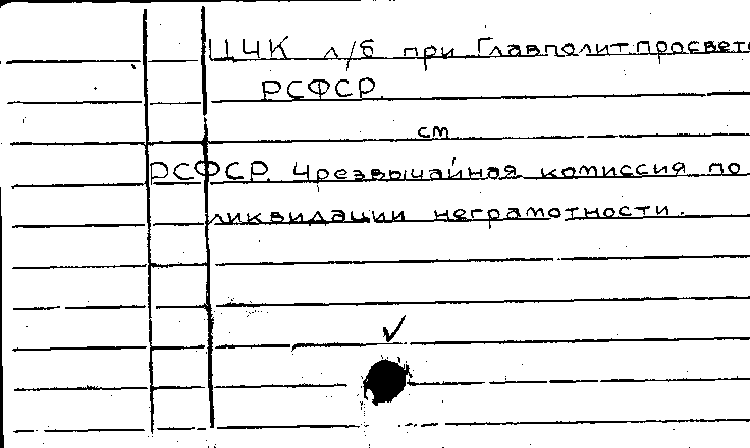 ЦЧК л/б при Главполитпросвете
РСФСР.
см
РСФСР. Чрезвычайная комиссия по
ликвидации неграмотности.